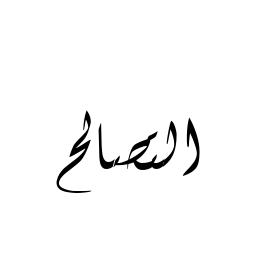 التصالح